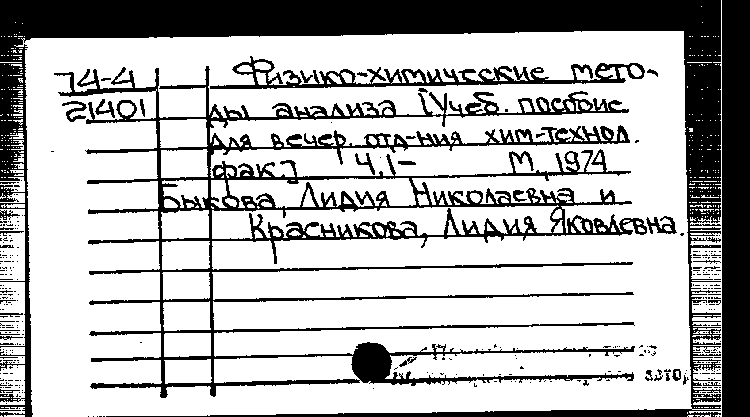 74-4 Физико-химические мето-
21401 ды анализа [Учеб. пособие
для вечер. отд-ния хим-технол.
фак.] Ч,1- М., 1974
Быкова, Лидия Николаевна и
Красникова, Лидия Яковлевна.
авто,